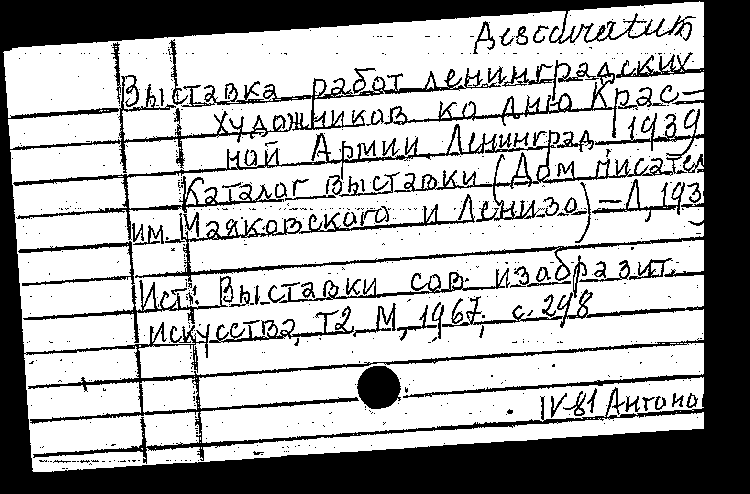 Desideratum
Выставка работ ленинградских
художников ко дню Крас-
ной Армии. Ленинград 1939
Каталог выставки (Дом писател
им. Маяковского и Ленизо) - Л, 193
Ист: Выставки сов. изобразит.
искусства, Т2. М, 1967, с. 248
IV-81 Антоно